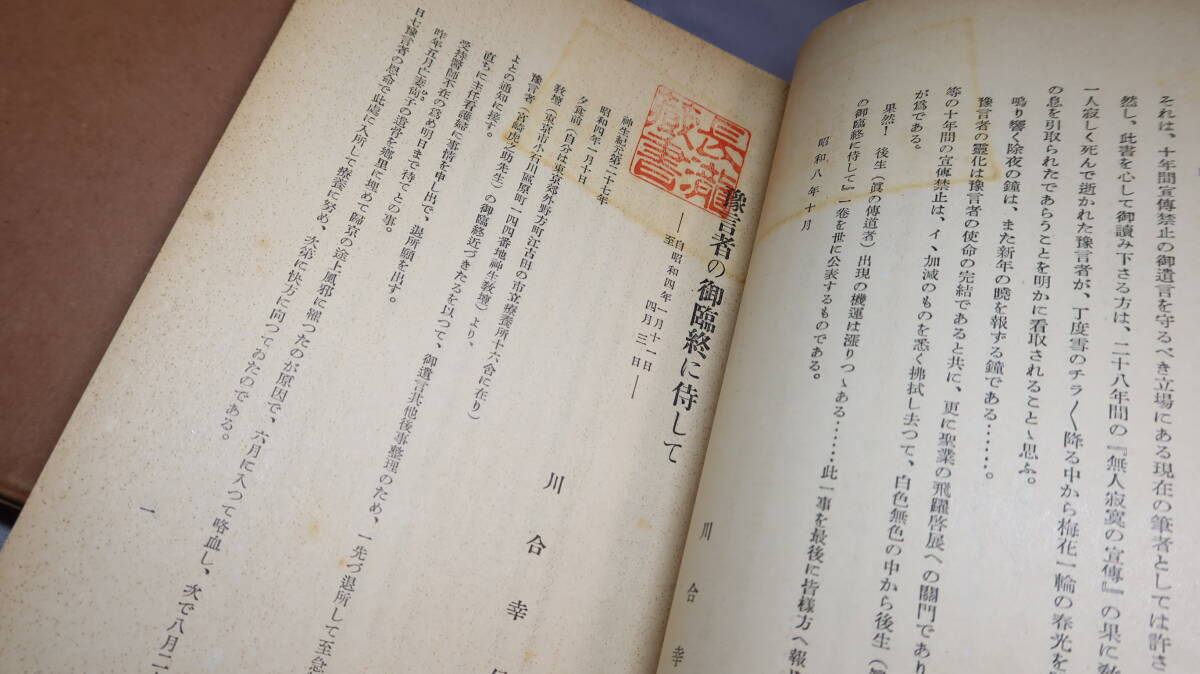 それは、十年間宣傳禁止の御遺言を守るべき立場にある現在の筆者としては許さ
然し、此書を心して御讀み下さる方は、二十八年間の『無人寂寞の宣傳』の果に
一人寂しく死んで逝かれた豫言者が、丁度雪のチラ〱降る中から梅花一輪の春光を
の息を引取られたであらうことを明かに看取されること〻思ふ。
鳴り響く除夜の鐘は、また新年の曉を報ずる鐘である……。
豫言者の靈化は豫言者の使命の完結であると共に、更に聖業の飛躍啓展への關門であり
等の十年間の宣傳禁止は、イ、加減のものを悉く拂拭し去つて、白色無色の中から後生（
が爲である。
果然！　後生（眞の傳道者）出現の機運は漲りつ〻ある……此一事を最後に皆樣方へ報
の御臨終に侍して』一卷を世に公表するものである。
昭和八年十月
川合幸
長瀧藏書
豫言者の御臨終に侍して
―自昭和四年一月十一日
至　四月三日―
川合幸
神生紀元第二十七年
昭和四年一月十日
夕食前（自分は東京郊外野方町江古田の市立療養所十六舍に在り）
敎壇（東京市小石川區原町一四四番地神生敎壇）より、
豫言者（宮崎虎之助先生）の御臨終近づきたるを以つて、御遺言其他後事整理のため、一先づ退所して至急
よとの通知に接す。
直ちに主任看護婦に事情を申し出で、退所願を出す。
受持醫師不在の爲め明日まで待てとの事。
昨年五月亡妻尚子の遺骨を鄕里に埋めて歸京の途上風邪に罹つたのが原因で、六月に入つて喀血し、次で八月二
日七豫言者の恩命で此處に入所して療養に努め、次第に快方に向つてゐたのである。
一